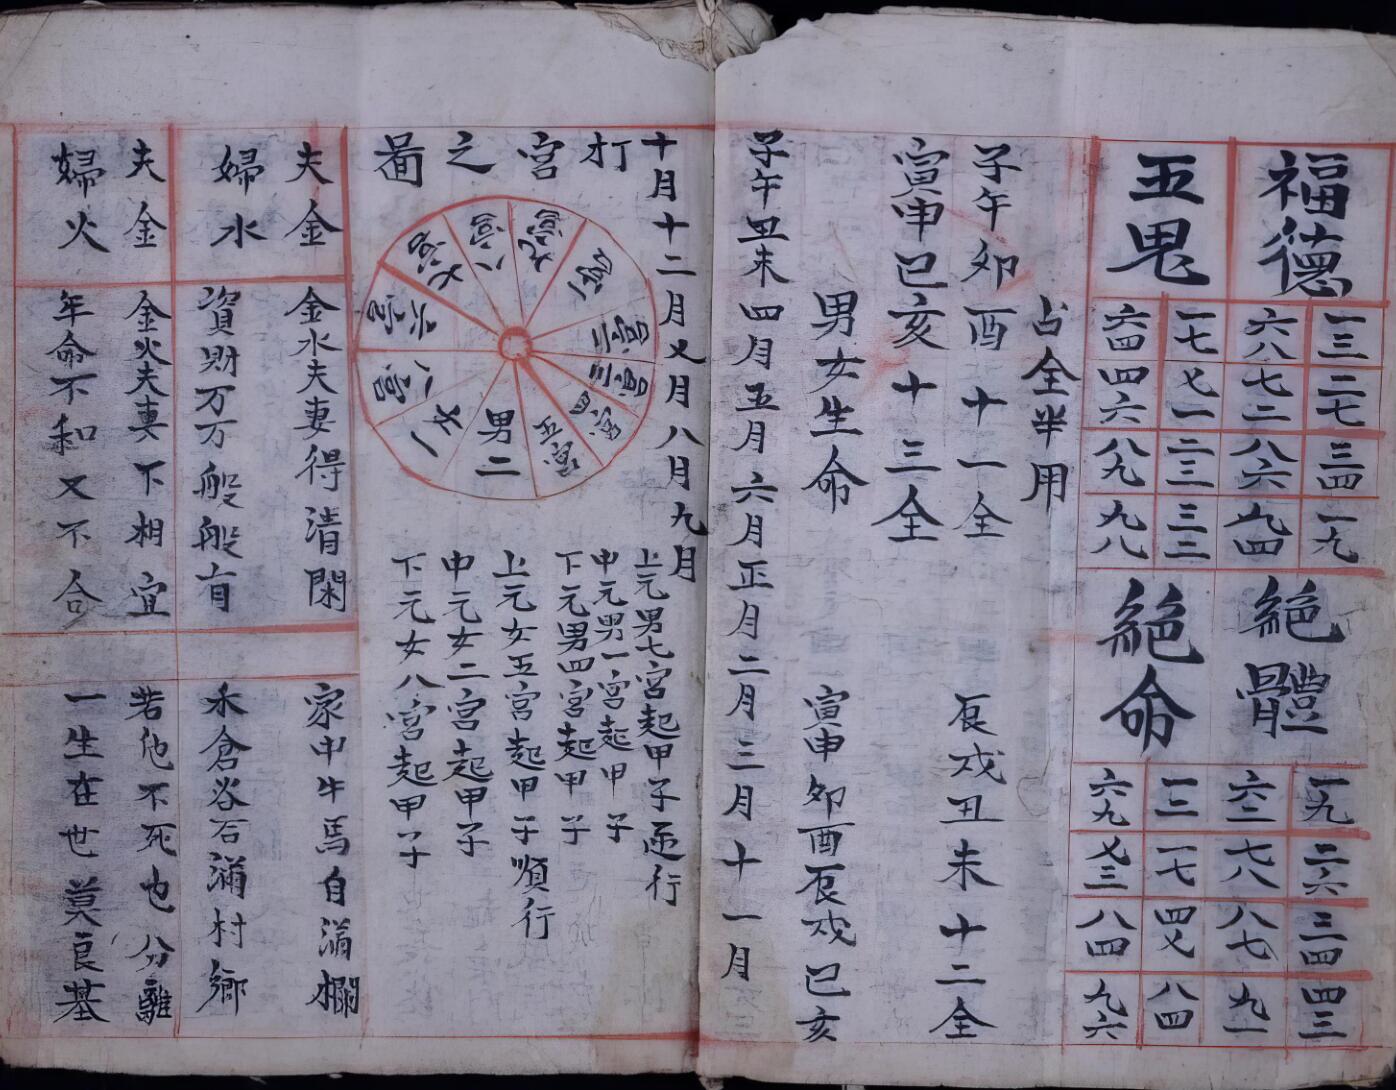 福德
五鬼
一三 二七 三四 一九
六八 七二 八六 九四
一七 七一 二三 三二
六四 四六 八九 九八
絕體
絕命
一九 二六 三四 四三
六二 七八 八七 九一
一二 一七 四七 八四
六九 七三 八四 九六
占全半用
子午卯酉十一全
辰戌丑未十二全
寅申巳亥十三全
男女生命
寅申卯酉辰戌巳亥
子午丑未四月五月六月正月二月三月十一月
十月十二月又月八月九月
打宮之啚
一宮
二宮
三宮
四宮
五宮
男二
女一
八宮
六宮
七宮
八宮
九宮
上元男七宮起甲子逆行
中元男一宮起甲子
下元男四宮起甲子
上元女五宮起甲子順行
中元女二宮起甲子
下元女八宮起甲子
夫金
婦水
金水夫妻得清閑
家中牛馬自滿欄
資財万万般般有
禾倉谷石滿村鄉
夫金
婦火
金火夫妻下相宜
若他不死也分離
年命不和又不合
一生在世莫良基